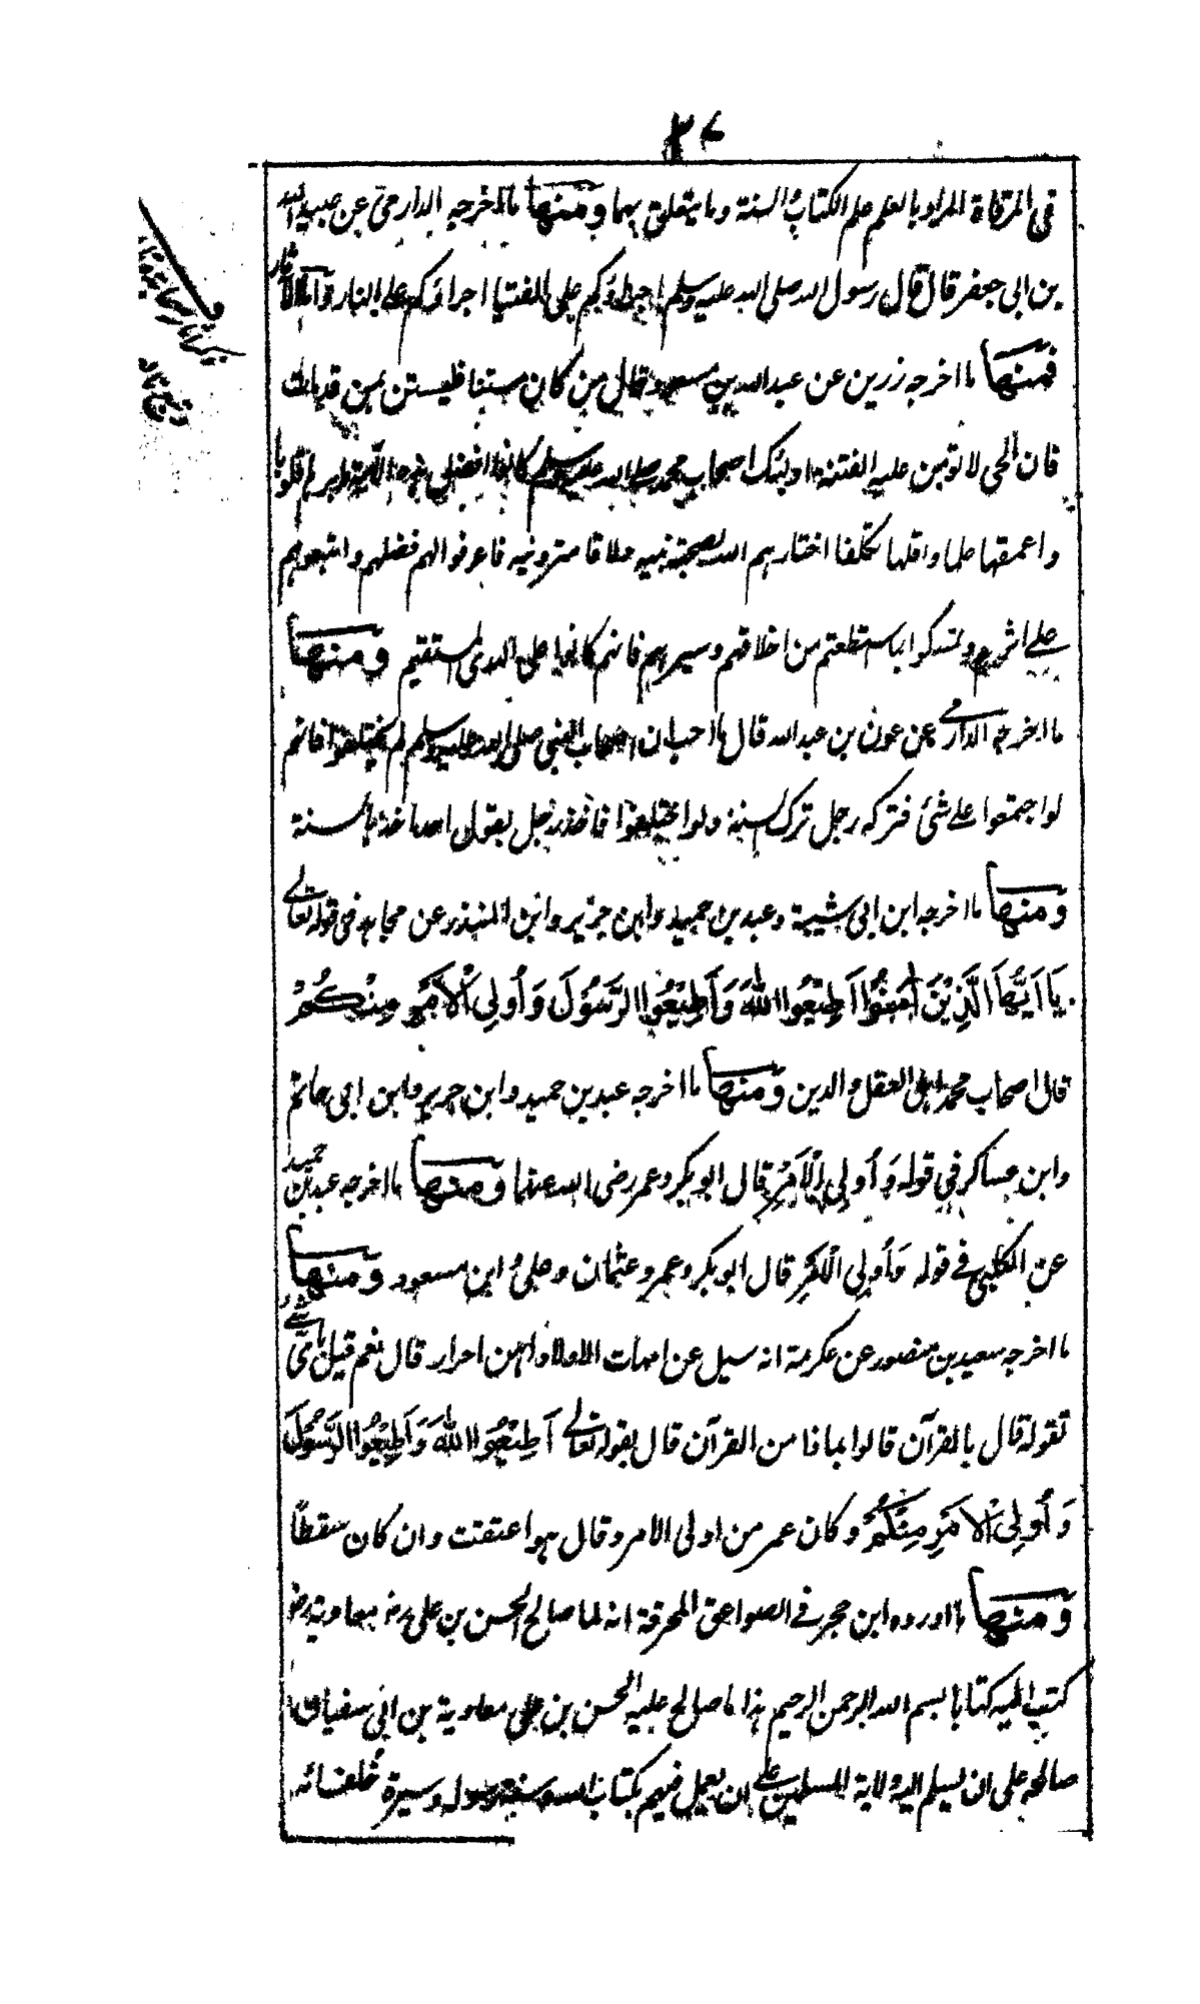 ٢٧
في المرقاة المراد بالعلم علم الكتاب والسنة وما يتعلق بهما ومنها ما اخرجه الدارمي عن عبيد الله
بن ابي جعفر قال قال رسول الله صلى الله عليه وسلم اجرؤكم على الفتيا اجرؤكم على النار واما الآثار
فمنها ما اخرجه رزين عن عبد الله بن مسعود قال من كان مستنا فليستن بمن قد مات
فان الحي لا تؤمن عليه الفتنة اولئك اصحاب محمد صلى الله عليه وسلم كانوا افضل هذه الامة ابرها قلوبا
واعمقها علما واقلها تكلفا اختارهم الله لصحبة نبيه ولاقامة دينه فاعرفوا لهم فضلهم واتبعوهم
على اثرهم وتمسكوا بما استطعتم من اخلاقهم وسيرهم فانهم كانوا على الهدى المستقيم ومنها
ما اخرجه الدارمي عن عون بن عبد الله قال ما احب ان اصحاب النبي صلى الله عليه وسلم لم يختلفوا فانهم
لو اجتمعوا على شئ فتركه رجل ترك السنة ولو اختلفوا فاخذ رجل بقول احد اخذ بالسنة
ومنها ما اخرجه ابن ابي شيبة وعبد بن حميد وابن جرير وابن المنذر عن مجاهد في قوله تعالى
يَا اَيُّهَا الَّذِيْنَ اٰمَنُوْا اَطِيْعُوا اللّٰهَ وَاَطِيْعُوا الرَّسُوْلَ وَاُولِى الْاَمْرِ مِنْكُمْ
قال اصحاب محمد اهل العقل والدين ومنها ما اخرجه عبد بن حميد وابن جرير وابن ابي حاتم
وابن عساكر في قوله وَاُولِى الْاَمْرِ قال ابو بكر وعمر رضى الله عنهما ومنها ما اخرجه عبد بن حميد
عن الكلبي في قوله وَاُولِى الْاَمْرِ قال ابو بكر وعمر وعثمان وعلى وابن مسعود ومنها
ما اخرجه سعيد بن منصور عن عكرمة انه سيل عن امهات الاولاد اهن احرار قال نعم قيل باى شئ
تقوله قال بالقرآن قالوا بماذا من القرآن قال بقوله تعالى اَطِيْعُوا اللّٰهَ وَاَطِيْعُوا الرَّسُوْلَ
وَاُولِى الْاَمْرِ مِنْكُمْ وكان عمر من اولى الامر وقال هو اعتقت وان كان سقطًا
ومنها ما اورده ابن حجر في الصواعق المحرقة انه لما صالح الحسن بن على رضـ معاوية رضـ
كتب اليه كتابا بسم الله الرحمن الرحيم هذا ما صالح عليه الحسن بن على معاوية بن ابى سفيان
صالحه على ان يسلم اليه ولاية المسلمين على ان يعمل فيهم بكتاب الله وسنة رسوله وسيرة خلفائه